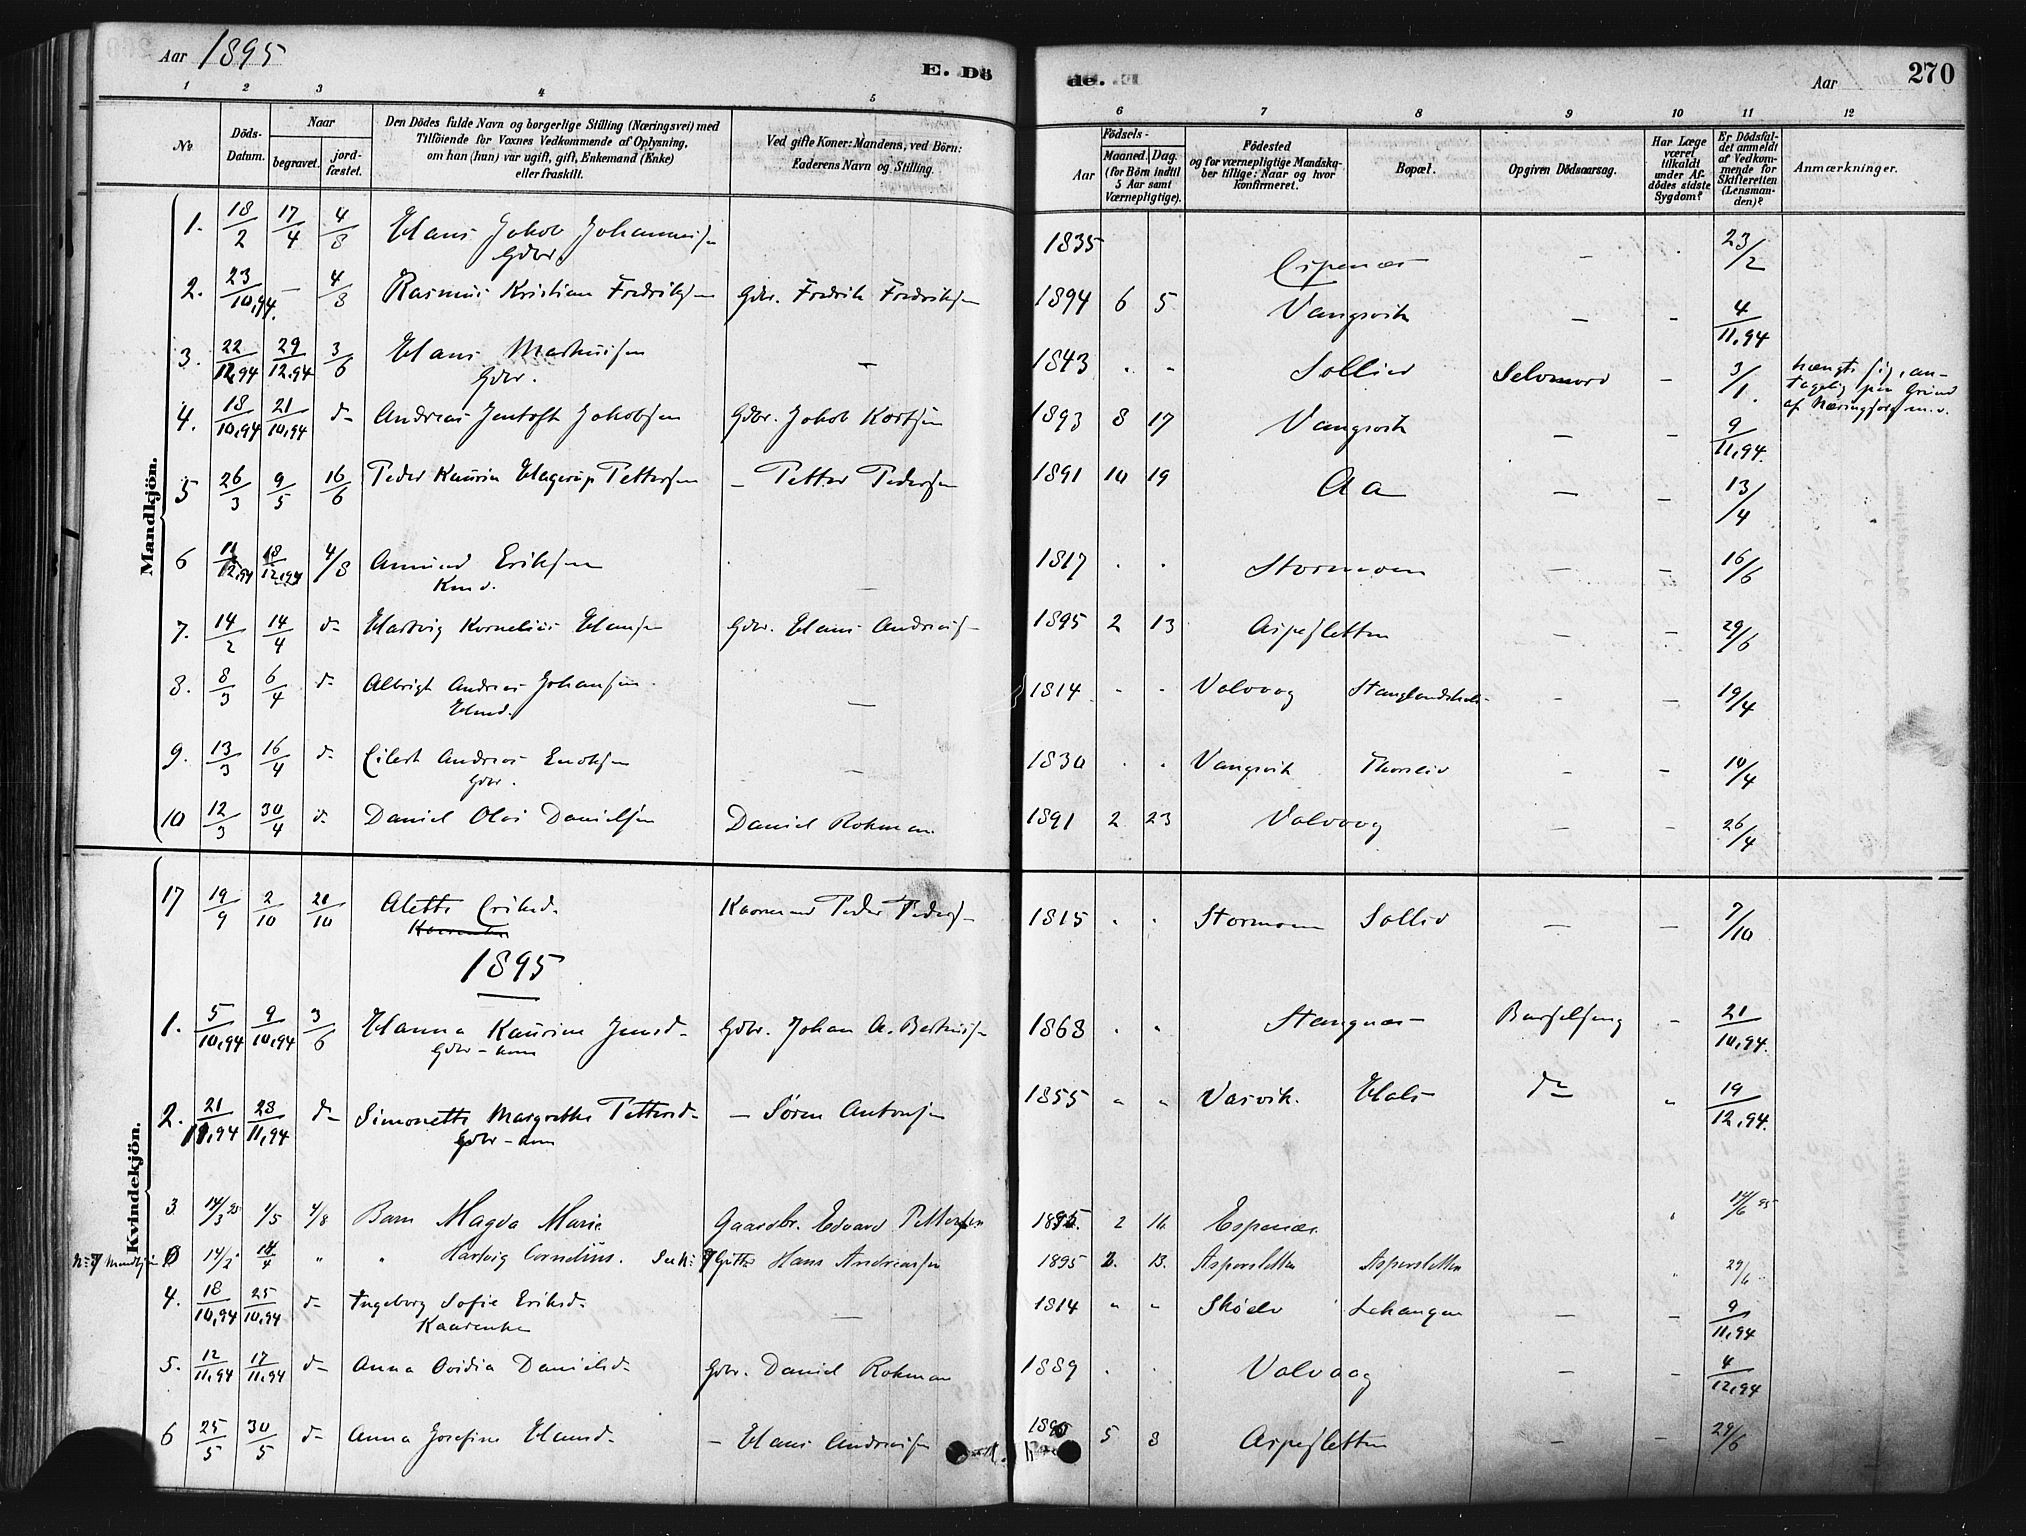 Aar 1895 E. Dö de. Aar 270
1 2 3 4 5 6 7 8 9 10 11 12
No
Döds-Datum.
Naar
begravet.
jord-fæstet.
Den Dödes fulde Navn og borgerlige Stilling (Næringsvei) med
Tilföiende for Voxnes Vedkommende af Oplysning,
om han (hun) var ugift, gift, Enkemand (Enke)
eller fraskilt.
Ved gifte Koner: Mandens, ved Börn:
Faderens Navn og Stilling.
Födsels-
Aar
Maaned. Dag.
(for Börn indtil
5 Aar samt
Værnepligtige).
Födested
og for værnepligtige Mandska-
ber tillige: Naar og hvor
konfirmeret.
Bopæl.
Opgiven Dödsaarsag.
Har Læge
været
tilkaldt
under Af-
dödes sidste
Sygdom?
Er Dödsfal-
det anmeldt
af Vedkom-
mende for
Skifteretten
(Lensman-
den)?
Anmærkninger.
Mandkjön.
1. 18/2 17/4 4/8 Hans Jakob Johannessen 1835 Espenæs - 23/2
Gdbr.
2. 23/10,94. - 4/8 Rasmus Kristian Fredriksen Gdbr. Fredrik Fredriksen 1894 6 5 Vangsvik - - 4/11,94
3. 22/12,94 29/12,94 3/6 Hans Markussen - 1843 " " Sollid Selvmord - 3/1. hængte sig, an-
Gdbr. tagelig paa Grund
af Næringssorg m.v.
4. 18/10,94 21/10,94 d- Andreas Jentoft Jakobsen Gdbr. Jakob Kortsen 1893 8 17 Vangsvik - - 9/11,94.
5 26/3 9/5 16/6 Peder Kaurin Hagerup Pettersen - Petter Pedersen 1891 10 19 Aa - - 13/4
6 11/12,94 18/12,94 4/8 Amund Eriksen - 1817 . . Stormoen - - 16/6
7. 14/2 14/4 d- Hartvig Kornelius Hansen Gdbr. Hans Andreas 1895 2 13 Aspesletten - - 29/6
8. 8/3 6/4 d- Albrigt Andreas Johansen - 1814 " " Valvaag Stanglandshals - - 19/4
9. 13/3 16/4 d- Eilert Andreas Enoksen - 1830 . . Vangsvik Thorslid - - 10/4
Gdbr.
10 12/3 30/4 d- Daniel Olai Danielsen Daniel Rokman 1891 2 23 Valvaag - - 26/4
Kvindekjön.
17 19/9 2/10 20/10 Alette Eriksd. Kaarmand Peder Peders 1815 . . Stormoen Sollid - - 7/10
1895
1. 5/10,94 9/10,94 3/6 Hanna Kaurine Jensd- Gdbr. Johan A. Berteussen 1868 " " Stangnæs Barselseng - 21/10,94.
Gdbr-kone
2. 21/11,94 28/11,94 d- Simonette Margrethe Pettersd- - Søren Antonsen 1855 " " Vasvik. Hals d- " 19/12,94.
Gdbr-kone
3 14/3 95 1/5 4/8 Barn Magda Marie Gaardbr. Edvard Pettersen 1895. 2 16. Espenæs. " 14/6 95
No 7 Mandkjøn 14/2 14/4 " " Hartvig Cornelius. Gitte Hans Andreassen 1895 2. 13. Aspesletten Aspesletten " 29/6
4. 18/10,94 25/10,94 d- Ingeborg Sofie Eriksd. - 1814 " " Skøelv Lekangen - - 9/11,94
Kaarenke
5. 12/11,94 17/11,94 d- Anna Ovidia Danielsd- Gdbr. Daniel Rokman 1889 . . Valvaag - - 4/12,94
6 25/5 30/5 d- Anna Josefine Hansd- - Hans Andreassen 1890 5 8 Aspesletten - - 29/6